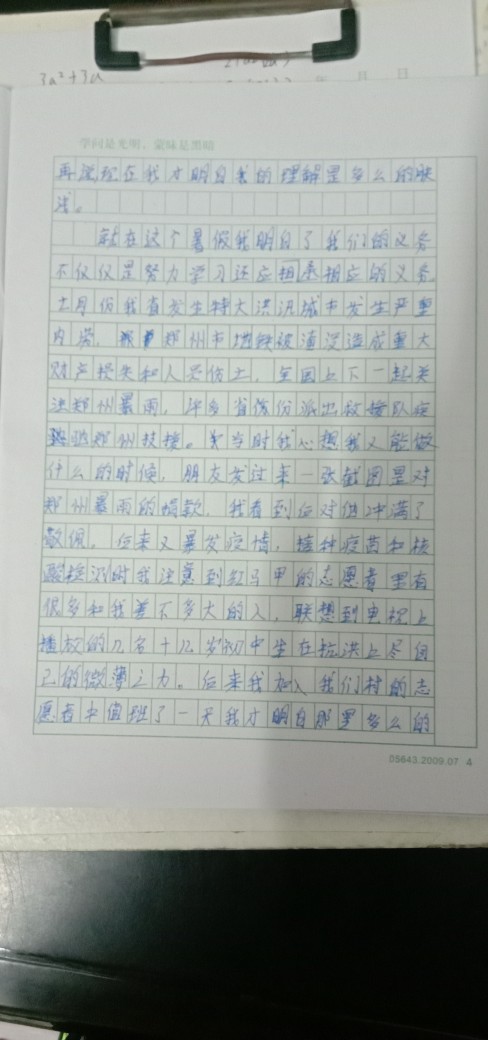 3a²+3a
年 月 日
学问是光明，蒙昧是黑暗
在我才明白我的理解是多么的肤
浅。
就在这个暑假我明白了我们的义务
不仅仅是努力学习还应担承相应的义务
七月份我省发生特大洪汛城市发生严重
内涝，郑州市地铁被淹没造成重大
财产损失和人员伤亡，全国上下一起关
注郑州暴雨，许多省份派出救援队疾
驰郑州扶援。当时我心想我又能做
什么的时候，朋友发过来一张截图是对
郑州暴雨的捐款，我看到后对他冲满了
敬佩。后来又暴发疫情，接种疫苗和核
酸检测时我注意到红马甲的志愿者里有
很多和我差不多大的人，联想到电视上
播放的几名十几岁初中生在抗洪上尽自
己的微薄之力。后来我加入我们村的志
愿者中值班了一天我才明白那是多么的
05643.2009.07 4